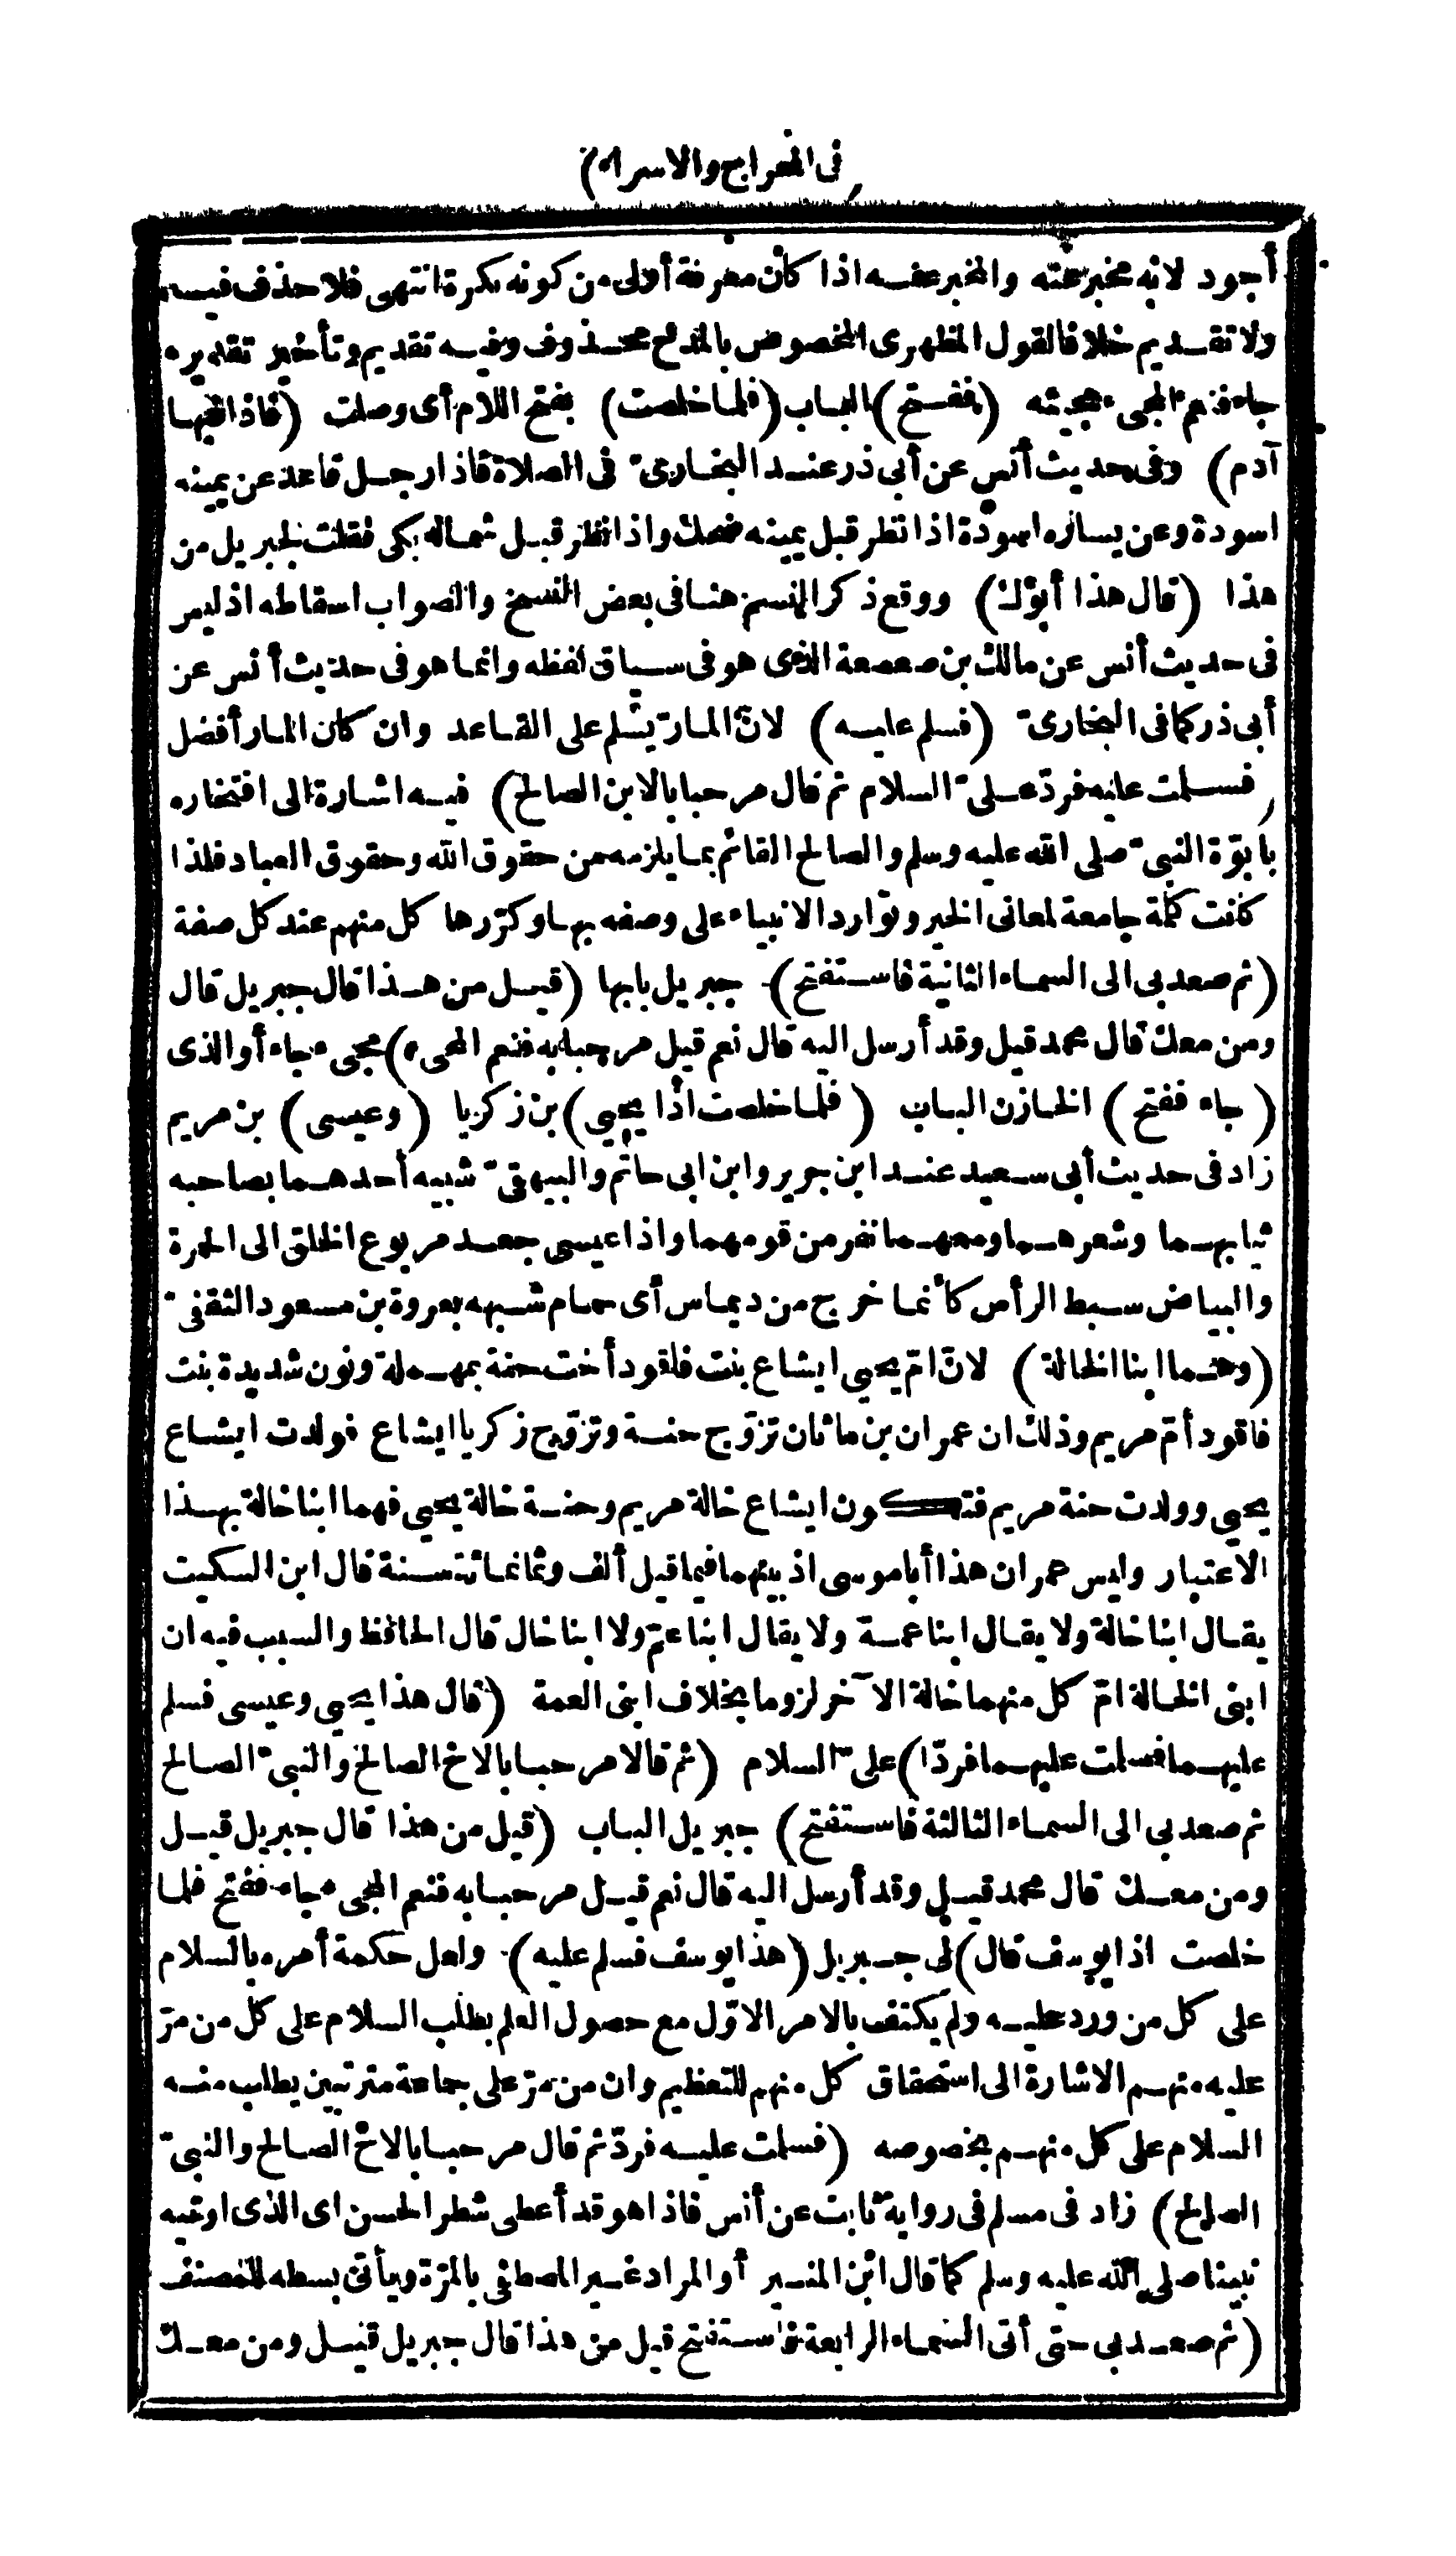 في المعراج والاسراء)
أجود لانه مخبر عنه والمخبر عنه اذا كان معرفة أولى من كونه نكرة انتهى فلا حذف فيه
ولا تقديم خلافا لقول المظهرى المخصوص بالمدح محذوف وفيه تقديم وتأخير تقديره
جاء فنعم المجىء مجيئه (ففتح) الباب (فلما خلصت) بفتح اللام أى وصلت (فاذا فيها
آدم) وفى حديث أنس عن أبى ذر عند البخارىّ فى الصلاة فاذا رجل قاعد عن يمينه
اسودة وعن يساره اسودة اذا نظر قبل يمينه ضحك واذا نظر قبل شماله بكى فقلت لجبريل من
هذا (قال هذا أبوك) ووقع ذكر النسم هنا فى بعض النسخ والصواب اسقاطه اذ ليس
فى حديث أنس عن مالك بن صعصعة الذى هو فى سياق لفظه وانما هو فى حديث أنس عن
أبى ذر كما فى البخارىّ (فسلم عليه) لانّ المارّ يسلم على القاعد وان كان المار أفضل
(فسلمت عليه فردّ علىّ السلام ثم قال مرحبا بالابن الصالح) فيه اشارة الى افتخاره
بابوّة النبىّ صلى الله عليه وسلم والصالح القائم بما يلزمه من حقوق الله وحقوق العباد فلذا
كانت كلمة جامعة لمعانى الخير وتوارد الانبياء على وصفه بها وكرّرها كل منهم عند كل صفة
(ثم صعد بى الى السماء الثانية فاستفتح) جبريل بابها (قيل من هذا قال جبريل قال
ومن معك قال محمد قيل وقد أرسل اليه قال نعم قيل مرحبا به فنعم المجىء) مجىء جاء أو الذى
(جاء ففتح) الخازن الباب (فلما خلصت اذا يحيى) بن زكريا (وعيسى) بن مريم
زاد فى حديث أبى سعيد عند ابن جرير وابن ابى حاتم والبيهقىّ شبيه أحدهما بصاحبه
ثيابهما وشعرهما ومعهما نفر من قومهما واذا عيسى جعد مربوع الخلق الى الحمرة
والبياض سبط الرأس كأنما خرج من ديماس أى حمام شبهه بعروة بن مسعود الثقفىّ
(وهما ابنا الخالة) لانّ امّ يحيى ايشاع بنت فاقود أخت حنة بمهملة ونون شديدة بنت
فاقود أمّ مريم وذلك ان عمران بن ماثان تزوّج حنة وتزوّج زكريا ايشاع فولدت ايشاع
يحيى وولدت حنة مريم فتكون ايشاع خالة مريم وحنة خالة يحيى فهما ابنا خالة بهذا
الاعتبار وليس عمران هذا أبا موسى اذ بينهما فيما قيل ألف وثمانمائة سنة قال ابن السكيت
يقال ابنا خالة ولا يقال ابنا عمة ولا يقال ابنا عمّ ولا ابنا خال قال الحافظ والسبب فيه ان
ابنى الخالة امّ كل منهما خالة الآخر لزوما بخلاف ابنى العمة (قال هذا يحيى وعيسى فسلم
عليهما فسلمت عليهما فردّا) علىّ السلام (ثم قالا مرحبا بالاخ الصالح والنبىّ الصالح
ثم صعد بى الى السماء الثالثة فاستفتح) جبريل الباب (قيل من هذا قال جبريل قيل
ومن معك قال محمد قيل وقد أرسل اليه قال نعم قيل مرحبا به فنعم المجىء جاء ففتح فلما
خلصت اذا يوسف قال) لى جبريل (هذا يوسف فسلم عليه) ولعل حكمة أمره بالسلام
على كل من ورد عليه ولم يكتف بالامر الاوّل مع حصول العلم بطلب السلام على كل من مرّ
عليه منهم الاشارة الى استحقاق كل منهم للتعظيم وان من مرّ على جماعة مترتبين يطلب منه
السلام على كل منهم بخصوصه (فسلمت عليه فردّ ثم قال مرحبا بالاخ الصالح والنبىّ
الصالح) زاد فى مسلم فى رواية ثابت عن أنس فاذا هو قد أعطى شطر الحسن اى الذى اوتيه
نبينا صلى الله عليه وسلم كما قال ابن المنير أو المراد غير المصطفى بالمرّة ويأتى بسطه للمصنف
(ثم صعد بى حتى أتى السماء الرابعة فاستفتح قيل من هذا قال جبريل قيل ومن معك